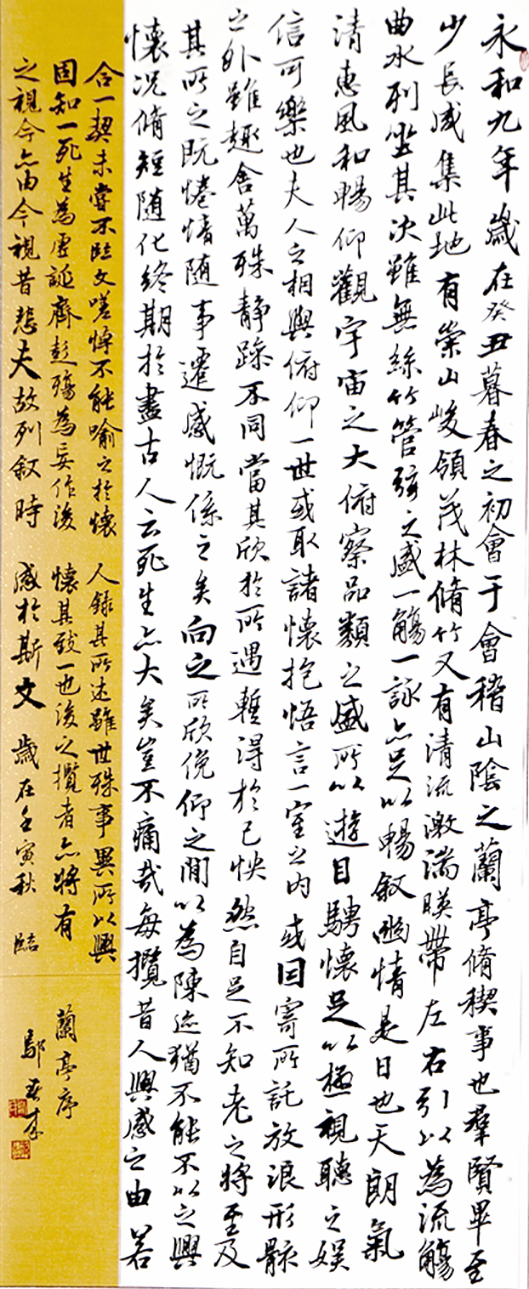 永和九年歲在癸丑暮春之初會于會稽山陰之蘭亭脩稧事也羣賢畢至
少長咸集此地有崇山峻領茂林脩竹又有清流激湍暎帶左右引以為流觴
曲水列坐其次雖無絲竹管弦之盛一觴一詠亦足以暢叙幽情是日也天朗氣
清惠風和暢仰觀宇宙之大俯察品類之盛所以遊目騁懷足以極視聽之娛
信可樂也夫人之相與俯仰一世或取諸懷抱悟言一室之內或因寄所託放浪形骸
之外雖趣舍萬殊靜躁不同當其欣於所遇暫得於己怏然自足不知老之將至及
其所之既惓情隨事遷感慨係之矣向之所欣俛仰之閒以為陳迹猶不能不以之興
懷况脩短隨化終期於盡古人云死生亦大矣豈不痛哉每攬昔人興感之由若
合一契未嘗不臨文嗟悼不能喻之於懷
固知一死生為虛誕齊彭殤為妄作後
之視今亦由今視昔悲夫故列叙時
人錄其所述雖世殊事異所以興
懷其致一也後之攬者亦將有
感於斯文 歲在壬寅秋 臨
蘭亭序